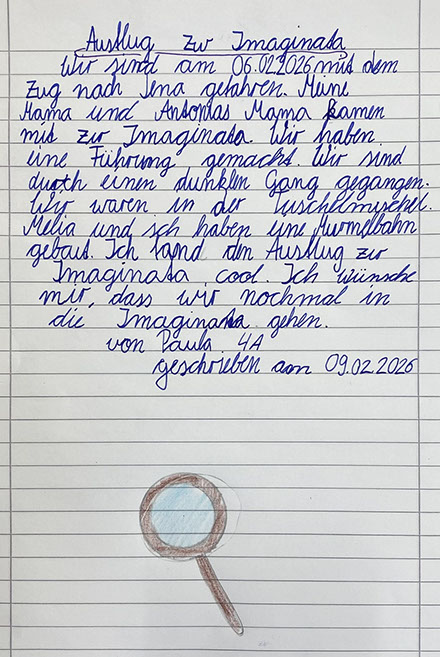 Ausflug zur Imaginata
Wir sind am 06.02.2026 mit dem
Zug nach Jena gefahren. Meine
Mama und Antonias Mama kamen
mit zur Imaginata. Wir haben
eine Führung gemacht. Wir sind
durch einen dunklen Gang gegangen.
Wir waren in der Tuschelmuschel.
Melia und ich haben eine Murmelbahn
gebaut. Ich fand den Ausflug zur
Imaginata cool. Ich wünsche
mir, dass wir nochmal in
die Imaginata gehen.
von Paula 4A
geschrieben am 09.02.2026